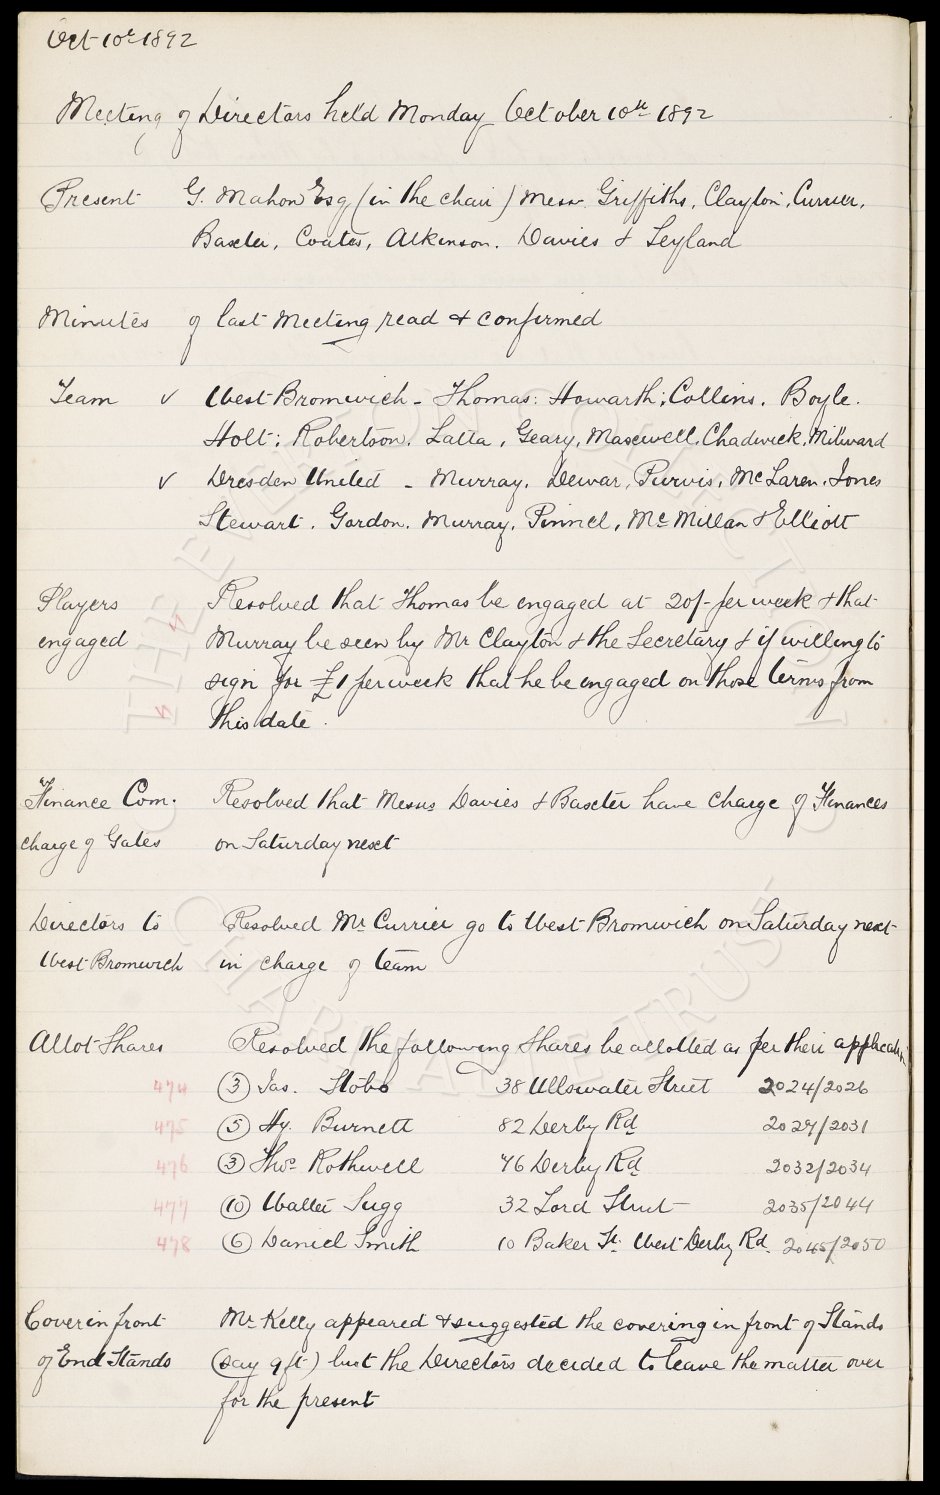 Oct 10th 1892
Meeting of Directors held Monday October 10th 1892
Present G. Mahon Esq (in the chair) Messr. Griffiths, Clayton, Currier,
Baxter, Coates, Atkinson. Davies & Leyland
Minutes of last Meeting read & confirmed
Team v West Bromwich - Thomas: Howarth; Collins. Boyle.
Holt; Robertson. Latta, Geary, Maxwell, Chadwick, Milward
v Dresden United - Murray, Dewar, Purvis, McLaren. Jones
Stewart. Gordon. Murray, Pinnel, Mc Millan & Elliott
Players Resolved that Thomas be engaged at 20/- per week & that
engaged Murray be seen by Mr Clayton & the Secretary & if willing to
sign for £1 per week that he be engaged on those terms from
this date.
Finance Com. Resolved that Messrs Davies & Baxter have charge of Finances
charge of Gates on Saturday next
Directors to Resolved Mr Currier go to West Bromwich on Saturday next
West Bromwich in charge of team
Allot Shares Resolved the following Shares be allotted as per their application
474 (3) Jas. Stobo 38 Ullswater Street 2024/2026
475 (5) Hy. Burnett 82 Derby Rd 2027/2031
476 (3) Thos Rothwell 76 Derby Rd 2032/2034
477 (10) Walter Sugg 32 Lord Street 2035/2044
478 (6) Daniel Smith 10 Baker St. West Derby Rd. 2045/2050
Cover in front Mr Kelly appeared & suggested the covering in front of Stands
of End Stands (say 9ft) but the Directors decided to leave the matter over
for the present
THE EVERTON COLLECTION
CHARITABLE TRUST